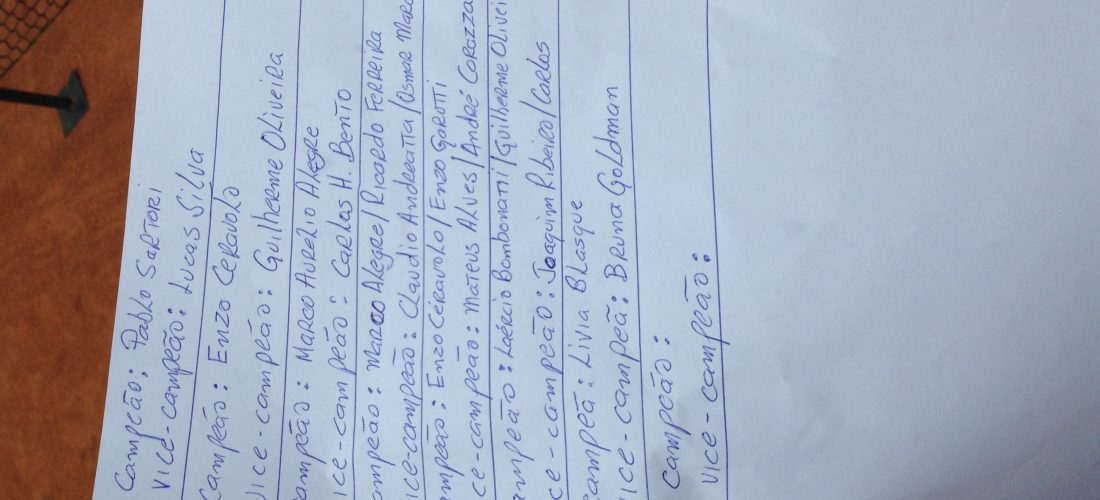 Campeão: Pablo Sartori
Vice-campeão: Lucas Silva
Campeão: Enzo Ceravolo
Vice-campeão: Guilherme Oliveira
ampeão: Marco Aurelio Alegre
ice-campeão: Carlos H. Bento
ampeão: Marco Alegre/Ricardo Ferreira
ice-campeão: Claudio Andreatta/Osmar Marc
mpeão: Enzo Céravolo/Enzo Garotti
ce-campeão: Mateus Alves/André Corazza
ampeão: Laércio Bombonatti/Guilherme Olivei
ce-campeão: Joaquim Ribeiro/Carlos
campeã: Livia Blasque
ice-campeã: Bruna Goldman
campeão:
Vice-campeão: